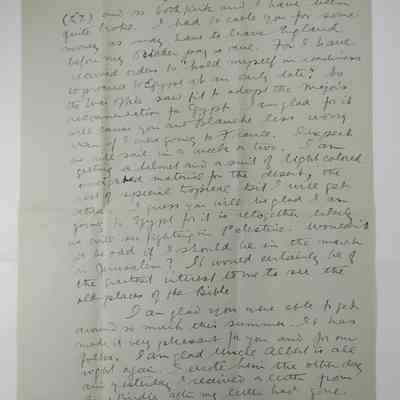 (£7) and so both Kirk and I have been
quite broke. I had to cable you for some
money as may have to leave England
before my October pay is due. For I have
received orders to "hold myself in readiness
to proceed to Egypt at an early date". So
the War Office saw fit to adopt the Major's
recommendation for Egypt. I am glad for it
will cause you and Blanche less worry
than if I was going to France. I expect
we will sail in a week or two. I am
getting a helmet and a suit of light colored
material for the desert, the
rest of special tropical kit I will get
after. I guess you will be glad I am
going to Egypt for it is altogether likely
we will be fighting in Palestine. Wouldn't
it be odd if I should be in the march
on Jerusalem? It would certainly be of
the greatest interest to me to see the
old places of the Bible
I am glad you were able to get
around so much this summer. It has
made it very pleasant for you and for our
folks. I am glad Uncle Albert is all
right again. I wrote him the other day
and yesterday I received a letter from
after my letter had gone.